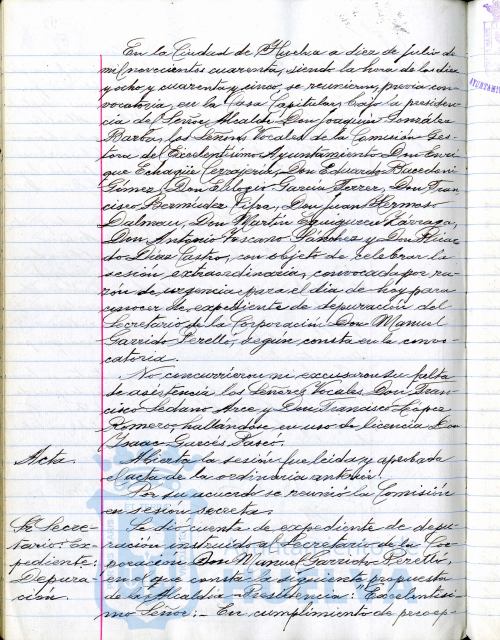 En la Ciudad de Huelva a diez de Julio de
mil novecientos cuarenta, siendo la hora de las diez
y ocho y cuarenta y cinco, se reunieron, previa con-
vocatoria, en la Casa Capitular, bajo la presiden-
cia del Señor Alcalde Don Joaquín González
Barba, los Señores Vocales de la Comisión Ges-
tora del Excelentísimo Ayuntamiento Don Enri-
que Echagüe Don Eduardo
Gómez, Don Eulogio García Ferrer, Don Fran-
cisco Bermúdez Don Juan Hermoso
Dalmau, Don Martín Eguiguren Lárraga,
Don Antonio Toscano Sánchez y Don Ricar-
do Díaz Castro, con objeto de celebrar la
sesión extraordinaria, convocada por ra-
zón de urgencia para el día de hoy para
conocer de expediente de depuración del
Secretario de la Corporación Don Manuel
Garrido Perelló, según consta en la convo-
catoria.
No concurrieron ni excusaron su falta
de asistencia los Señores Vocales Don Fran-
cisco Sedano Arce y Don Francisco López
Romero, hallándose en uso de licencia Don
Isaac Garcés
Acta. Abierta la sesión fue leida y aprobada
el acta de la ordinaria anterior.
Por su acuerdo se reunió la Comisión
en sesión secreta.
Sr. Secre- Se dio cuenta de expediente de depu-
tario: Ex- ración instruido al Secretario de la Cor-
pediente: poración Don Manuel Garrido Perelló,
Depura- en el que consta la siguiente propuesta
ción. de la Alcaldía-Presidencia: "Excelentísi-
mo Señor: - En cumplimiento de precep-